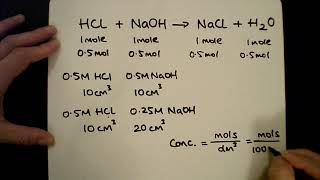 HCl + NaOH → NaCl + H₂O
1mole 1mole 1mole 1mole
0.5mol 0.5mol 0.5mol 0.5mol
0.5M HCl 0.5M NaOH
10cm³ 10cm³
0.5M HCl 0.25M NaOH
10cm³ 20cm³
Conc. = mols/dm³ = mols/100